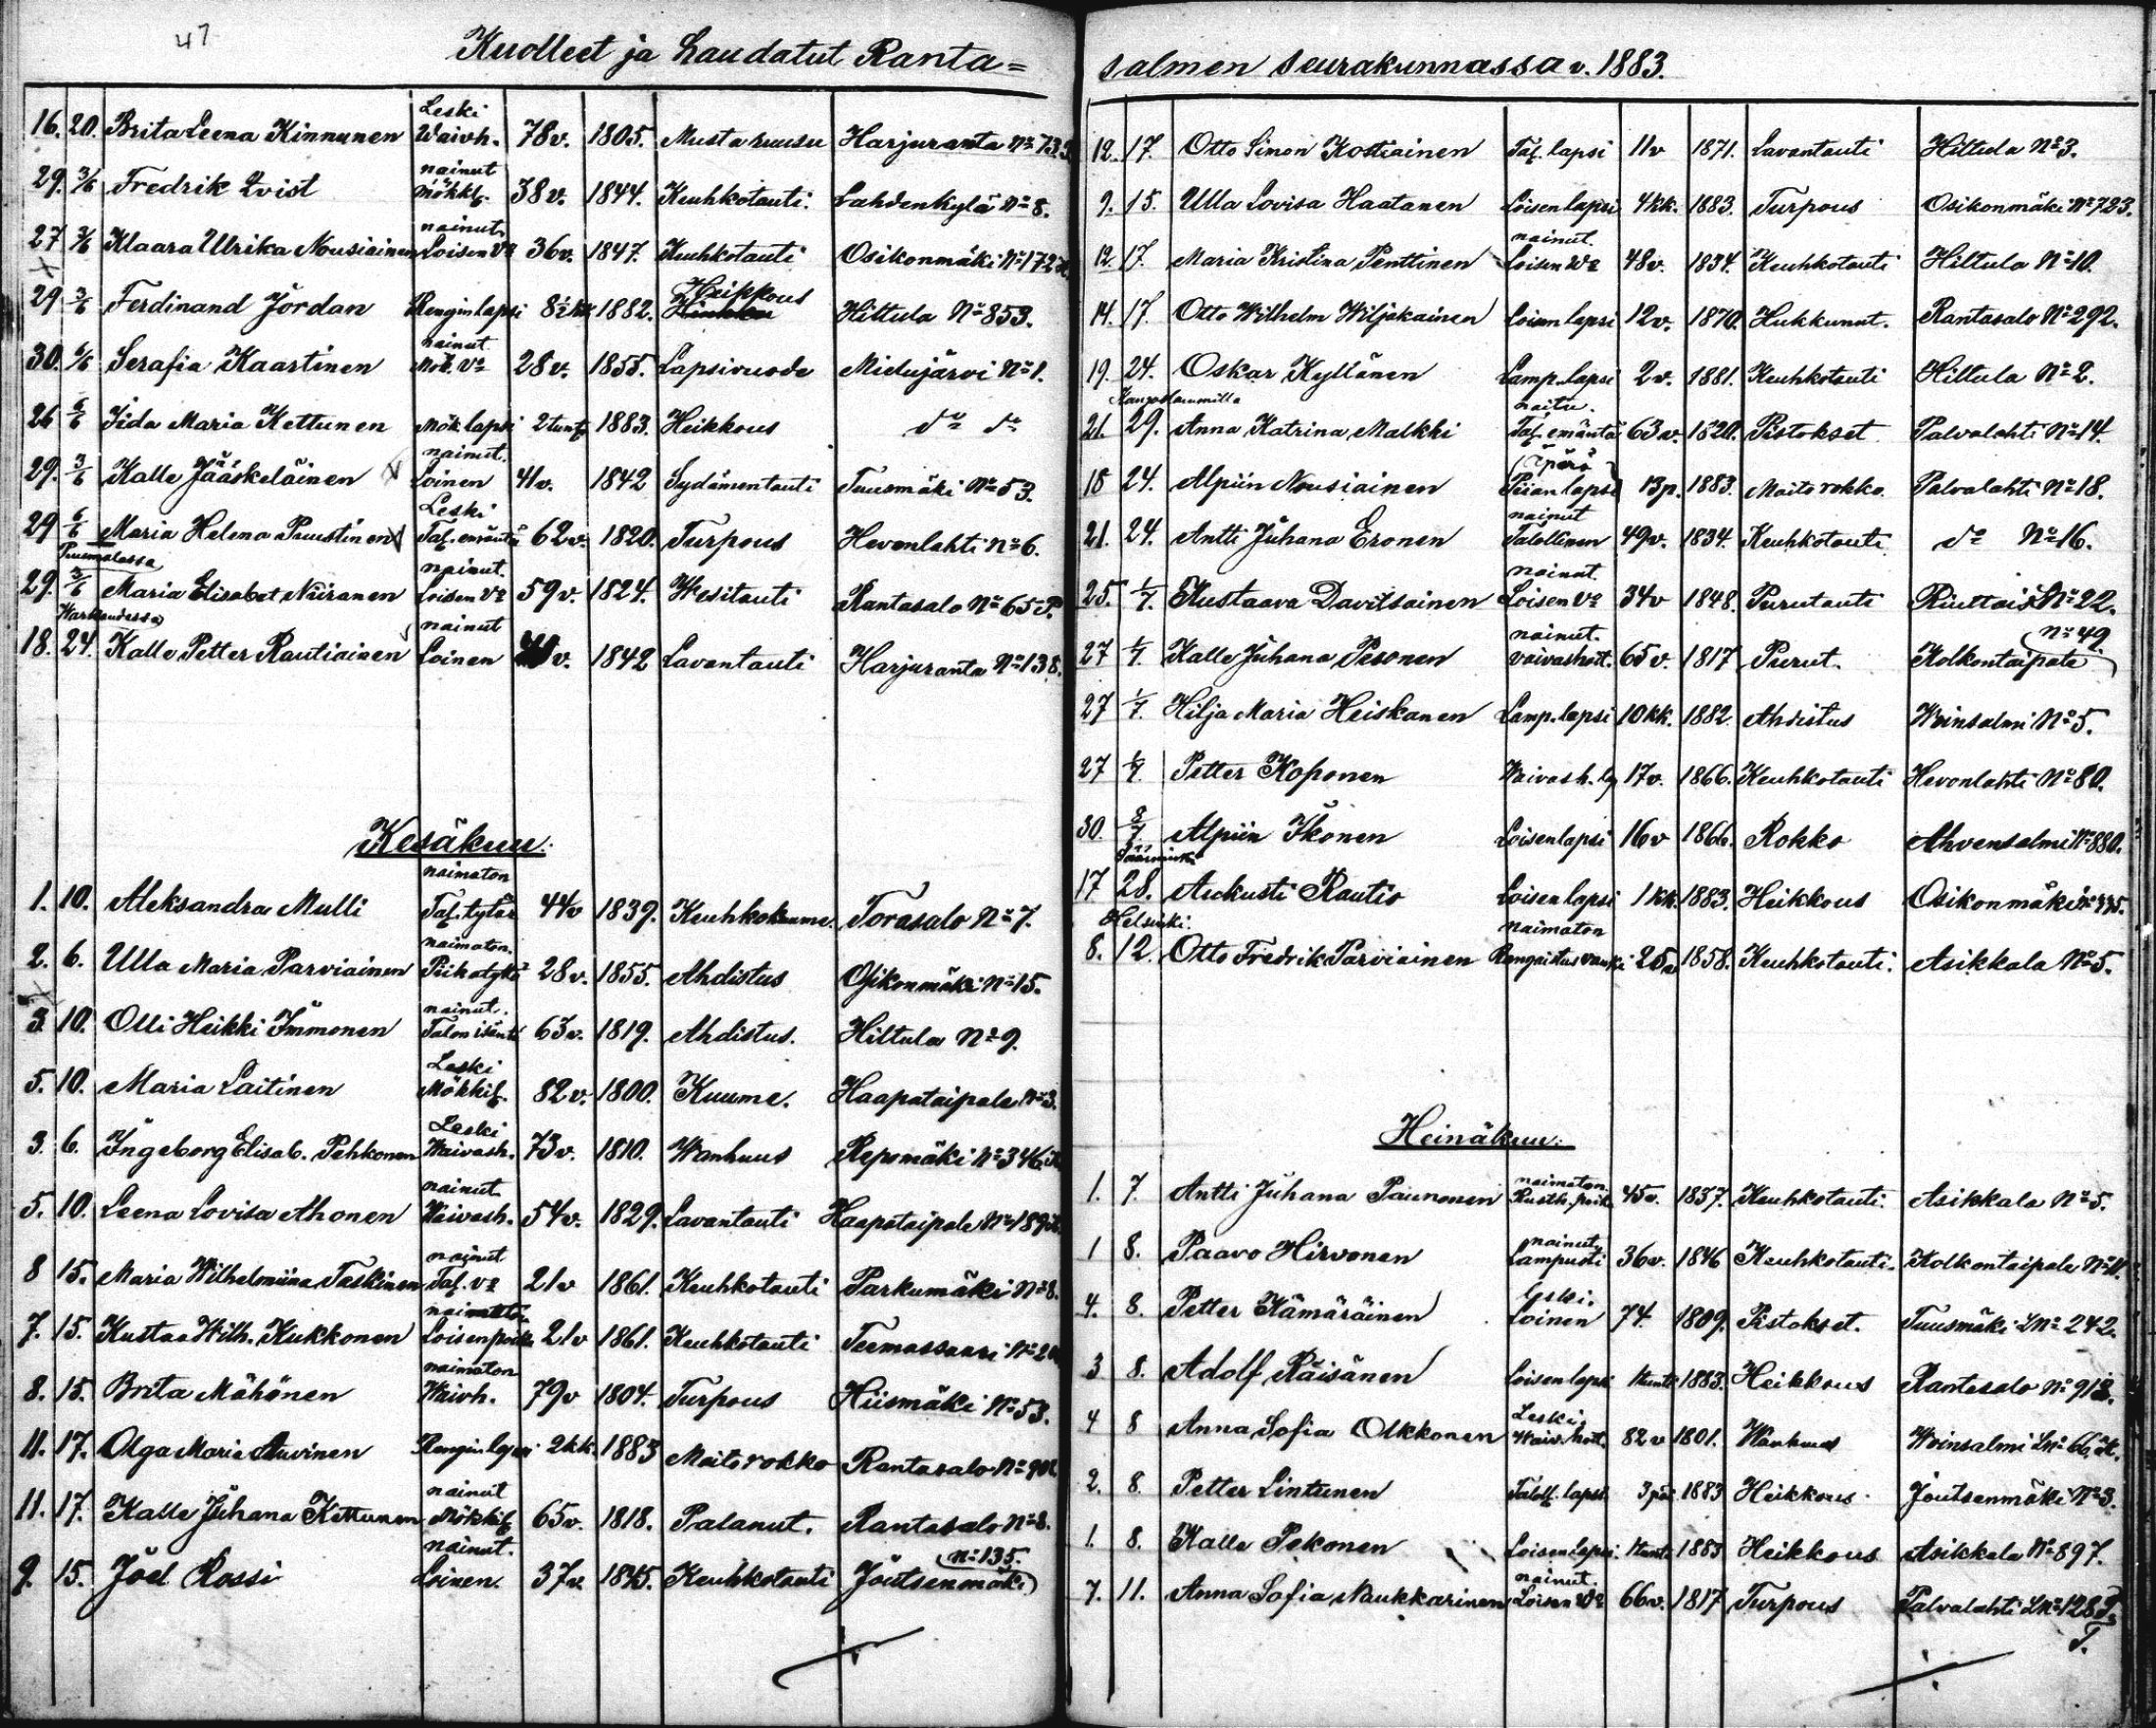 47
Kuolleet ja haudatut Ranta=
16. 20. Brita Leena Kinnunen Leski Waivh. 78 v. 1805. Musta ruusu Harjuranta No 733
29. 3/6 Fredrik Qvist nainut Mökkl. 38 v. 1844. Keuhkotauti. Lahdenkylä No 8.
27 3/6 Klaara Ulrika Nousiainen nainut Loisen Vo 36 v. 1847. Keuhkotauti Osikonmäki No 172
29 3/6 Ferdinand Jordan Rengin lapsi 8½ kk 1882. Heikkous Hiltula No 853.
30. 6/6 Serafia Kaartinen nainut Mök. Vo 28 v. 1855. Lapsivuode Mielujärvi No 1.
26 6/6 Iida Maria Kettunen Mök lapsi 2 tunt. 1883. Heikkous do do
29. 3/6 Kalle Jääskeläinen x nainut. Loinen 41 v. 1842 Sydämentauti Tuusmäki No 53.
29 6/6 Maria Helena Puustinen x Leski Tal. emäntä 62 v. 1820. Turpous Hevonlahti No 6.
Puumalassa
29. 3/6 Maria Elisabet Näiränen nainut. Loisen Vo 59 v. 1824. Wesitauti Rantasalo No 65
Warkaudessa
18. 24. Kalle Petter Rautiainen nainut Loinen v. 1842 Lavantauti Harjuranta No 138.
Kesäkuu.
1. 10. Aleksandra Mulli naimaton Tal. tytär 44 v 1839. Keuhkokuume. Torasalo No 7.
2. 6. Ulla Maria Parviainen naimaton. 28 v. 1855. Ahdistus Osikonmäki No 15.
x
3. 10. Olli Heikki Immonen nainut. Talon isäntä 63 v. 1819. Ahdistus. Hiltula No 9.
5. 10. Maria Laitinen Leski Mökkil. 82 v. 1800. Kuume. Haapataipale No 3.
3. 6. Ingeborg Elisab. Pehkonen Leski Waivash. 73 v. 1810. Wanhuus Repomäki No 346
5. 10. Leena Lovisa Ahonen nainut. Waivash. 54 v. 1829. Lavantauti Haapataipale No 189
8 15. Maria Wilhelmiina Taskinen nainut Tal. vo 21 v 1861. Keuhkotauti Parkumäki No 8.
7. 15. Kustaa Wilh. Kukkonen Loisen poika 21 v 1861. Keuhkotauti Teemassaari No
8. 15. Brita Mähönen naimaton Waivh. 79 v 1804. Turpous Hiismäki No 53.
11. 17. Olga Maria Auvinen Rengin lapsi 2 kk. 1883 Maito rokko Rantasalo No
11. 17. Kalle Juhana Kettunen nainut Mökkil. 65 v. 1818. Palanut. Rantasalo No 8.
9. 15. Joel Rossi nainut. Loinen. 37 v. 1845. Keuhkotauti Joutsenmäki No 135.
salmen seurakunnassa v. 1883.
12. 17. Otto Simon Kostiainen Tal. lapsi 11 v 1871. Lavantauti Hiltula No 3.
9. 15. Ulla Lovisa Haatanen Loisen lapsi 4 kk. 1883. Turpous Osikonmäki No 723.
12. 17. Maria Kristina Penttinen nainut. Loisen Wo 48 v. 1834. Keuhkotauti Hiltula No 10.
14. 17. Otto Wilhelm Wiljakainen Loisen lapsi 12 v. 1870. Hukkunut. Rantasalo No 292.
19. 24. Oskar Kyllönen Lamp. lapsi 2 v. 1881. Keuhkotauti Hiltula No 2.
Kangaslammilla
21. 29. Anna Katrina Malkki naitu. Tal. emäntä 63 v. 1820. Pistokset Palvalahti No 14.
18 24. Alpiin Nousiainen (äpärä) Piian lapsi 13 p. 1883. Maito rokko. Palvalahti No 18.
21. 24. Antti Juhana Eronen nainut Talollinen 49 v. 1834. Keuhkotauti do No 16.
25. 1/7. Kustaava Davitsainen nainut. Loisen Vo 34 v 1848. Purutauti No 22.
27 1/7. Kalle Juhana Pesonen nainut. vaivashoit. 65 v. 1817 Purut. Kolkontaipale No 49.
27 1/7. Hilja Maria Heiskanen Lamp. lapsi 10 kk. 1882. Ahdistus Woinsalmi No 5.
27 1/7. Petter Koponen Waivash. 17 v. 1866. Keuhkotauti Hevonlahti No 80.
30. 8/7. Alpiin Ikonen Loisen lapsi 16 v 1866. Rokko Ahvensalmi No 880.
Sääminki
17 28. Aukusti Rautio Loisen lapsi 1 kk. 1883. Heikkous Osikonmäki No 335.
Helsinki.
8. 12. Otto Fredrik Parviainen naimaton Rangaistus vanki 25 v 1858. Keuhkotauti. Asikkala No 5.
Heinäkuu.
1. 7. Antti Juhana Paunonen naimaton. Rusth. poik. 45 v. 1837. Keuhkotauti. Asikkala No 5.
1 8. Paavo Hirvonen nainut Lampuoti 36 v. 1846 Keuhkotauti. Kolkontaipale No 11.
4. 8. Petter Kämäräinen Leski. Loinen 74. 1809. Pistokset. Tuusmäki LNo 242.
3 8. Adolf Räisänen Loisen lapsi 1 tunt. 1883. Heikkous Rantasalo No 918.
4 8 Anna Sofia Olkkonen Leski. Waiv. hoit. 82 v 1801. Wanhuus Woinsalmi LNo 66
2. 8. Petter Lintunen Taloll. lapsi 3 päi. 1883 Heikkous Joutsenmäki No 3.
1. 8. Kalle Pekonen Loisen lapsi. 1 tunt. 1883 Heikkous Asikkala No 897.
7. 11. Anna Sofia Naukkarinen nainut. Loisen Wo 66 v. 1817 Turpous Palvalahti LNo 128
T.